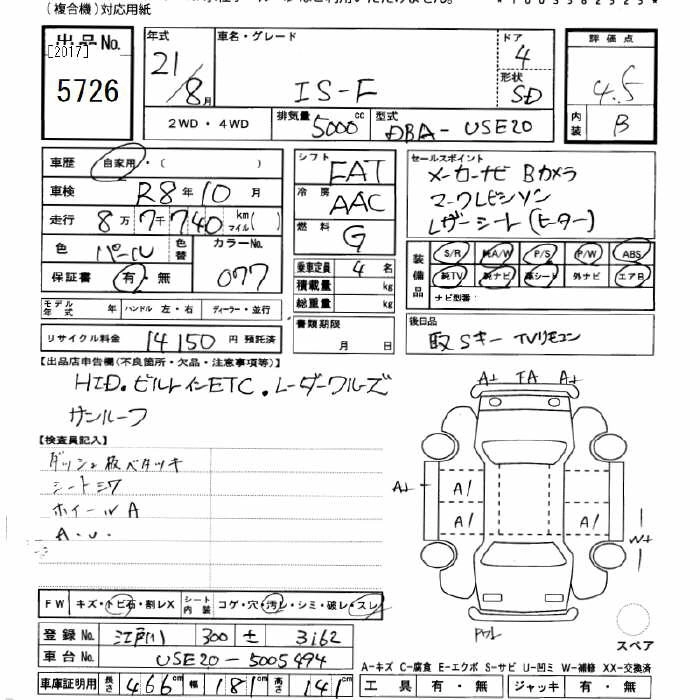 (複合機)対応用紙
出品No. [2017] 5726
年式 21/8月
車名・グレード IS-F
ドア 4
形状 SD
評価点 4.5
内装 B
2WD・4WD
排気量 5000cc
型式 DBA-USE20
車歴 自家用・( )
車検 R8年10月
走行 8万7千740 km マイル( )
色 パール 色替 カラーNo. 077
保証書 有・無
シフト FAT
冷房 AAC
燃料 G
乗車定員 4名
積載量 kg
総重量 kg
書類期限 月 日
セールスポイント
メーカーナビ Bカメラ
マークレビンソン
レザーシート(ヒーター)
装備品 S/R 純A/W P/S P/W ABS
純TV 純ナビ 革シート 外ナビ エアB
ナビ型番:
モデル年式 年 ハンドル 左・右 ディーラー・並行
リサイクル料金 14150円 預託済
後日品
取 Sキー TVリモコン
【出品店申告欄(不良箇所・欠品・注意事項等)】
HID.ビルトインETC.レーダークルーズ
サンルーフ
【検査員記入】
ダッシュ板ベタツキ
シートシワ
ホイールA
A.U.
A1 FA A1
A1 A1
A1 A1
FW キズ・トビ石・割レX シート内装 コゲ・穴・汚レ・シミ・破レ・スレ
登録No. 江戸川 300 3162
車台No. USE20-5005494
車庫証明用 長さ 466cm 幅 181cm 高さ 141cm
スペア
A-キズ C-腐食 E-エクボ S-サビ U-凹ミ W-補修 XX-交換済
工具 有・無 ジャッキ 有・無